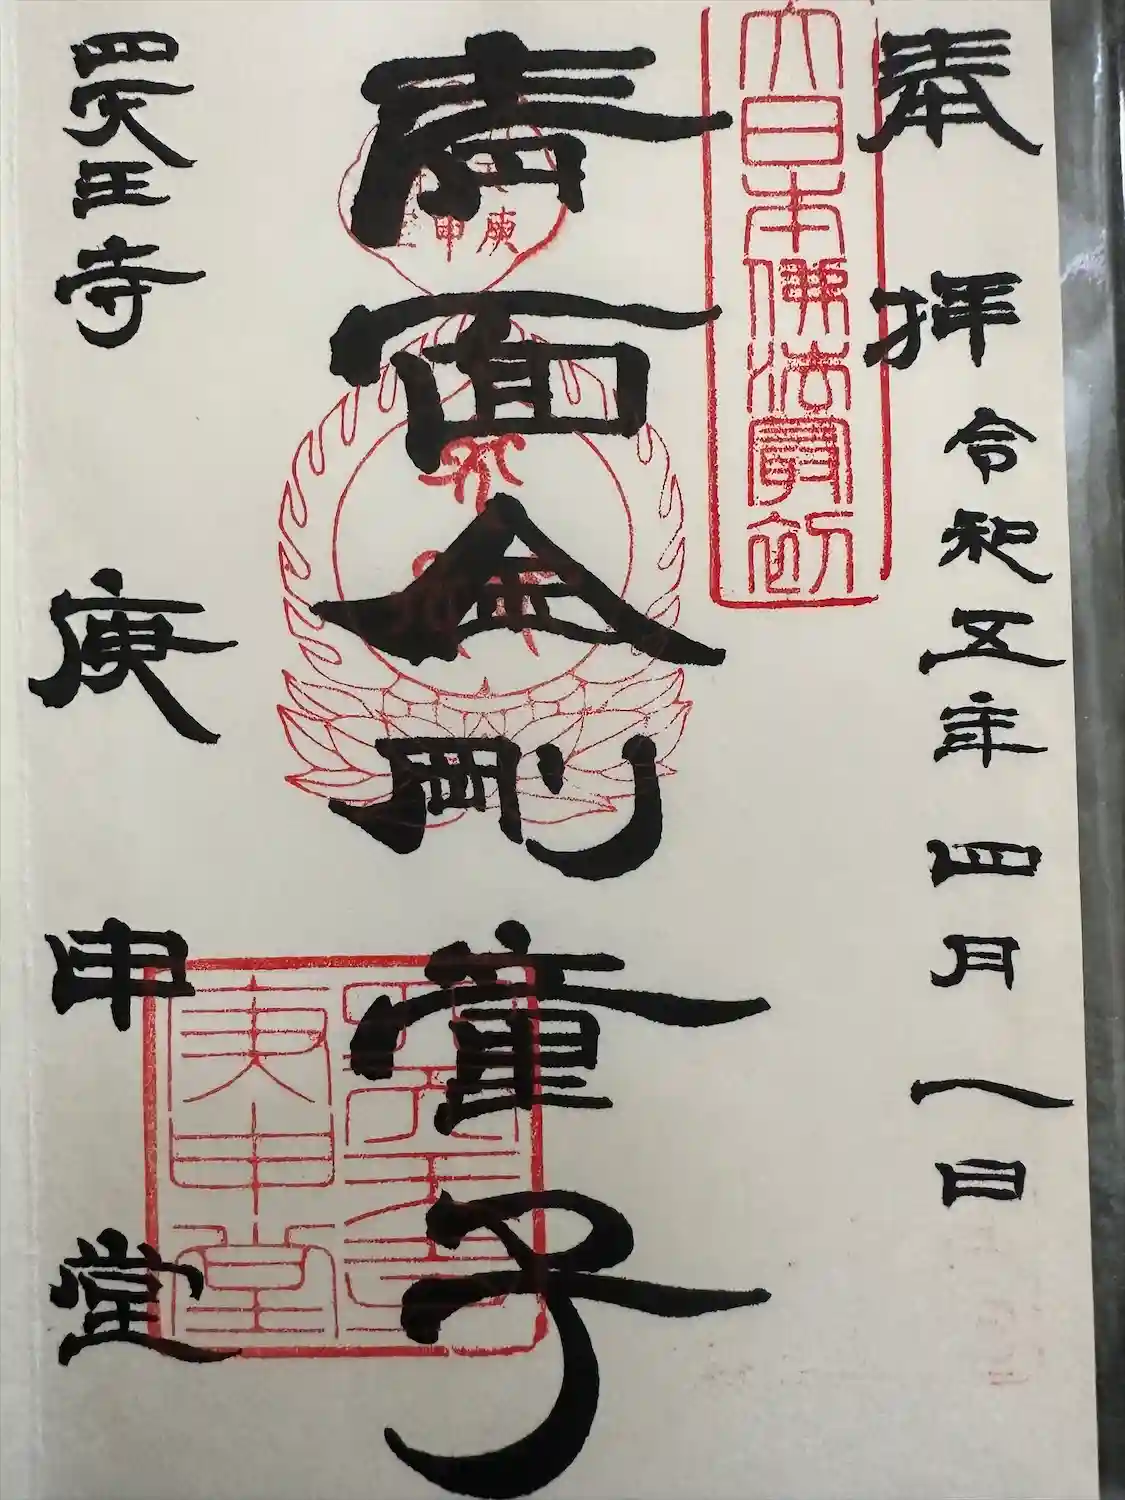 奉拝
令和五年四月八日
大日本佛法最初
青面金剛童子
四天王寺
庚申堂
庚申
庚申堂